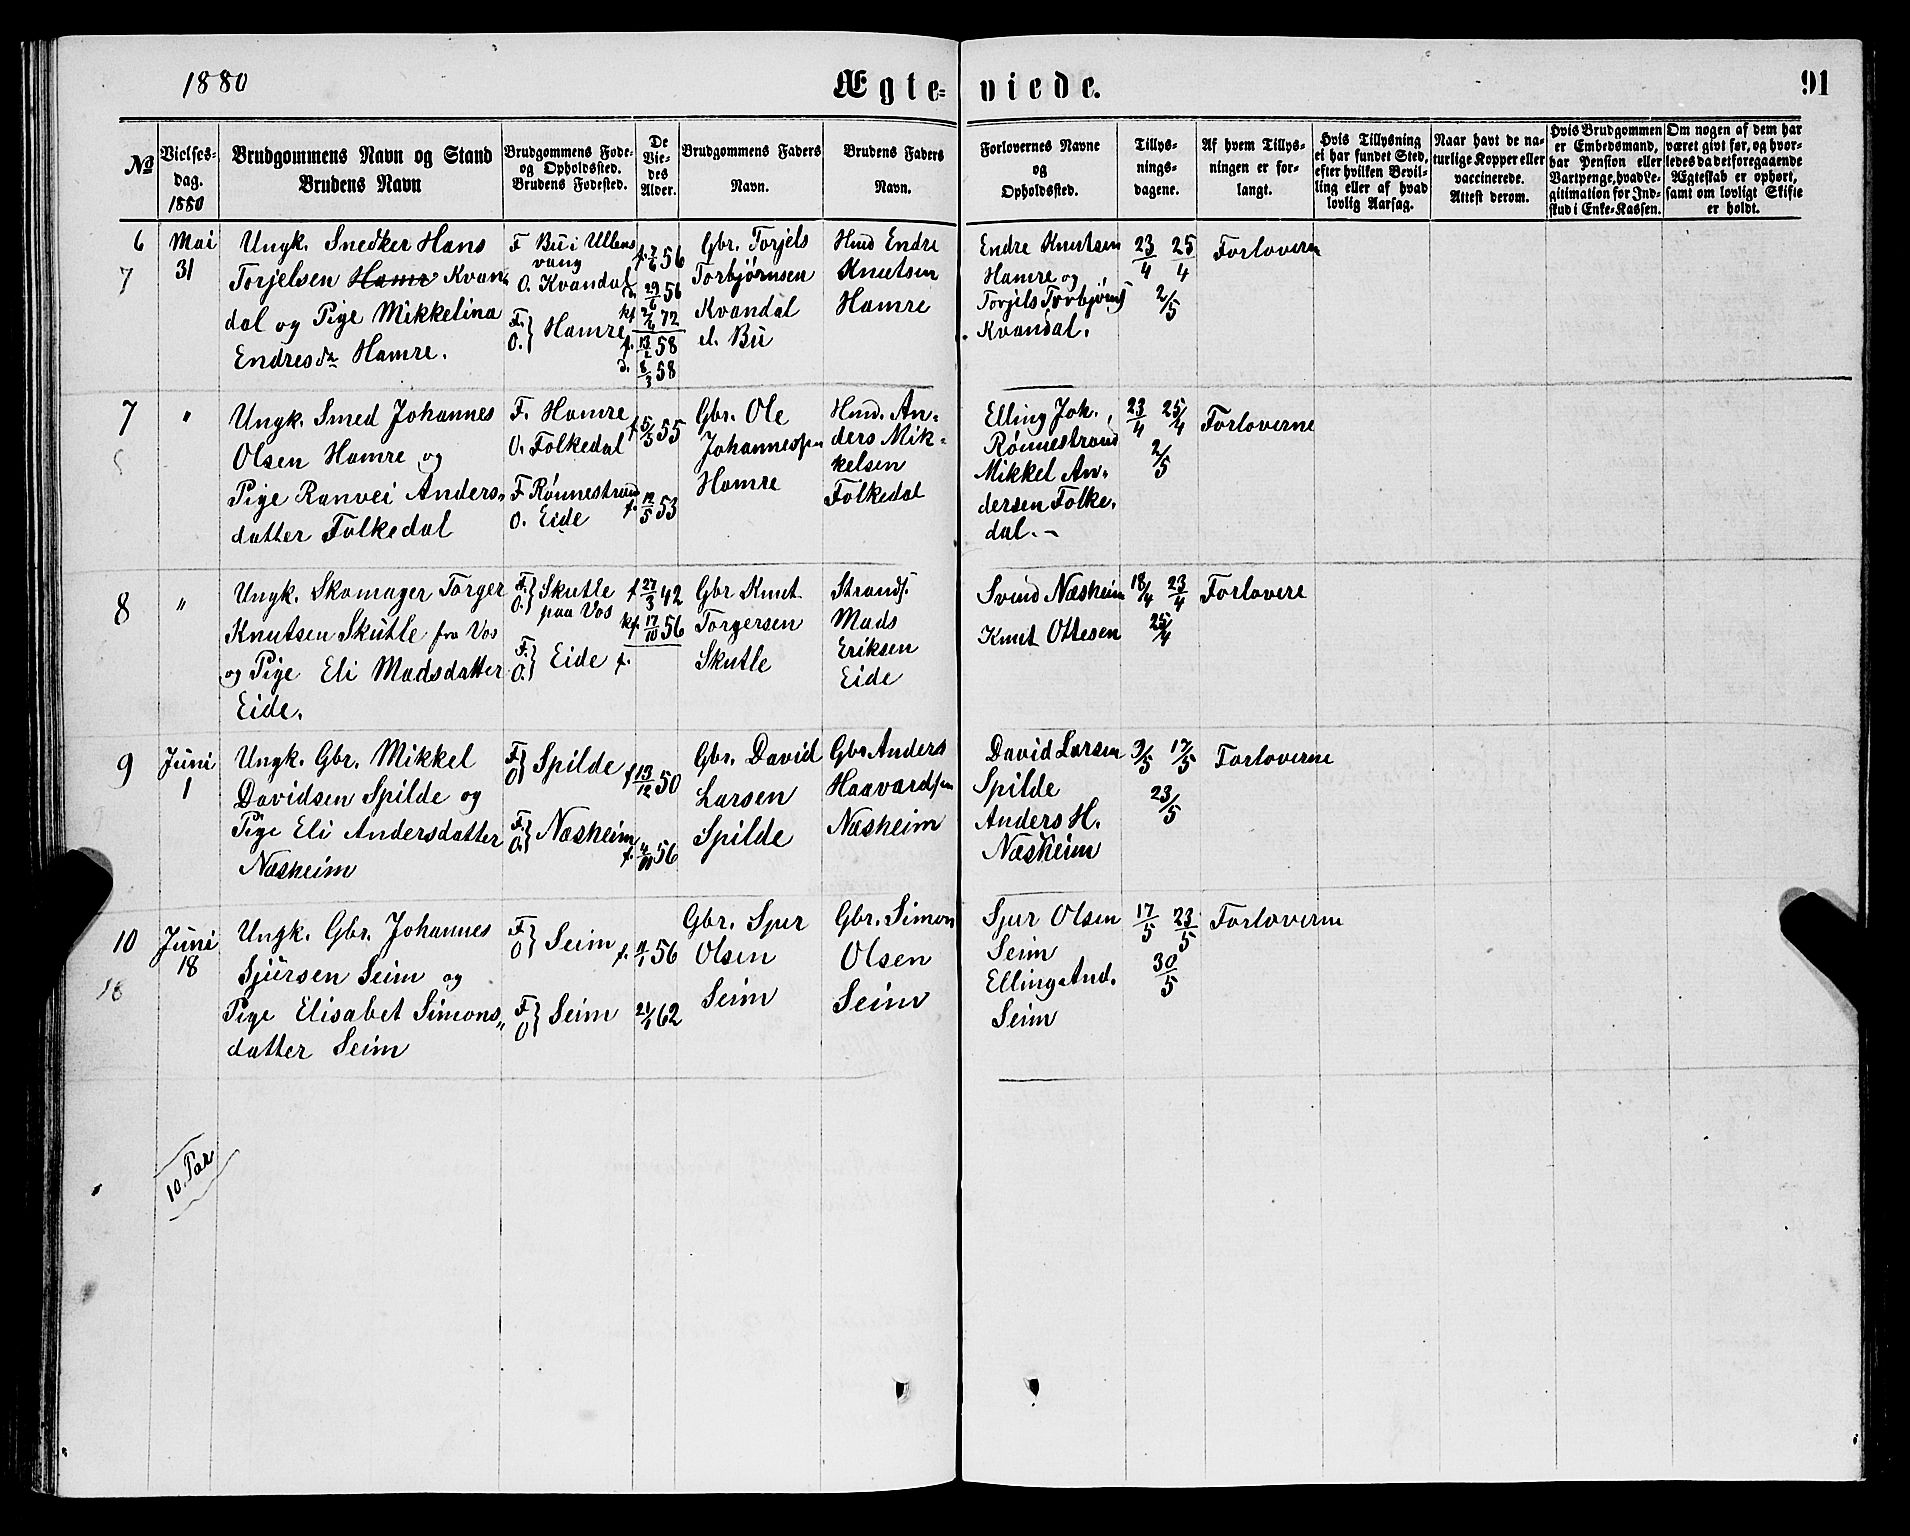 1880
Ægte- viede.
91
No
Vielses-
dag.
1880
Brudgommens Navn og Stand
Brudens Navn
Brudgommens Føde-
og Opholdssted.
Brudens Fødested.
De
Vie-
des
Alder.
Brudgommens Faders
Navn.
Brudens Faders
Navn.
Forlovernes Navne
og
Opholdssted.
Tillys-
nings-
dagene.
Af hvem Tillys-
ningen er for-
langt.
Hvis Tillysning
ei har fundet Sted,
efter hvilken Bevil-
ling eller af hvad
lovlig Aarsag.
Naar havt de na-
turlige Kopper eller
vaccinerede.
Attest derom.
Hvis Brudgommen
er Embedsmand,
har Pension eller
Vartpenge, hvad Le-
gitimation for Ind-
skud i Enke-Kassen.
Om nogen af dem har
været givt før, og hvor-
ledes da det foregaaende
Ægteskab er ophørt,
samt om lovligt Skifte
er holdt.
6
7
Mai
31
Ungk. Snedker Hans
Torjelsen Hamre Kvan-
dal og Pige Mikkelina
Endresdr Hamre.
F Bu i Ullens
vang
O. Kvandal
F.
O. } Hamre
f. 7/6 56
d. 29/6 56
kf 2/6 72
f. 13/2 58
d. 8/3 58
Gbr. Torjels
Torbjørnsen
Kvandal
el. Bu
Hmd Endre
Knutsen
Hamre
Endre Knutsen
Hamre og
Torjels Torbjørns
Kvandal.
23/4 25/4
2/5
Forloverne
7
"
Ungk. Smed Johannes
Olsen Hamre og
Pige Ranvei Anders-
datter Folkedal
F. Hamre
O. Folkedal
F Rønnestrand
O. Eide
f 5/3 55
f. 12/5 53
Gbr. Ole
Johannessen
Hamre
Hmd. An-
ders Mik-
kelsen
Folkedal
Elling Joh.
Rønnestrand
Mikkel An-
dersen Folke-
dal. -
23/4 25/4
2/5
Forloverne
8
"
Ungk. Skomager Torger
Knutsen Skutle fra Vos
og Pige Eli Madsdatter
Eide.
F.
O. } Skutle
paa Vos
F.
O. } Eide
f 27/3 42
kf 17/10 56
f.
Gbr Knut
Torgersen
Skutle
Strands.
Mads
Eriksen
Eide
Svend Næsheim
Knut Ottesen
18/4 23/4
25/4
Forlovere
9
Juni
1
Ungk. Gbr. Mikkel
Davidsen Spilde og
Pige Eli Andersdatter
Næsheim
F
O } Spilde
F.
O. } Næsheim
f 13/12 50
f. 4/11 56
Gbr. David
Larsen
Spilde
Gbr Anders
Haavardsen
Næsheim
David Larsen
Spilde
Anders H.
Næsheim
9/5 17/5
23/5
Forloverne
10
18
Juni
18
Ungk. Gbr. Johannes
Sjursen Seim og
Pige Elisabet Simons-
datter Seim
F
O } Seim
F
O } Seim
f. 11/1 56
21/1 62
Gbr. Sjur
Olsen
Seim
Gbr. Simon
Olsen
Seim
Sjur Olsen
Seim
Elling And.
Seim
17/5 23/5
30/5
Forloverne
10. Par